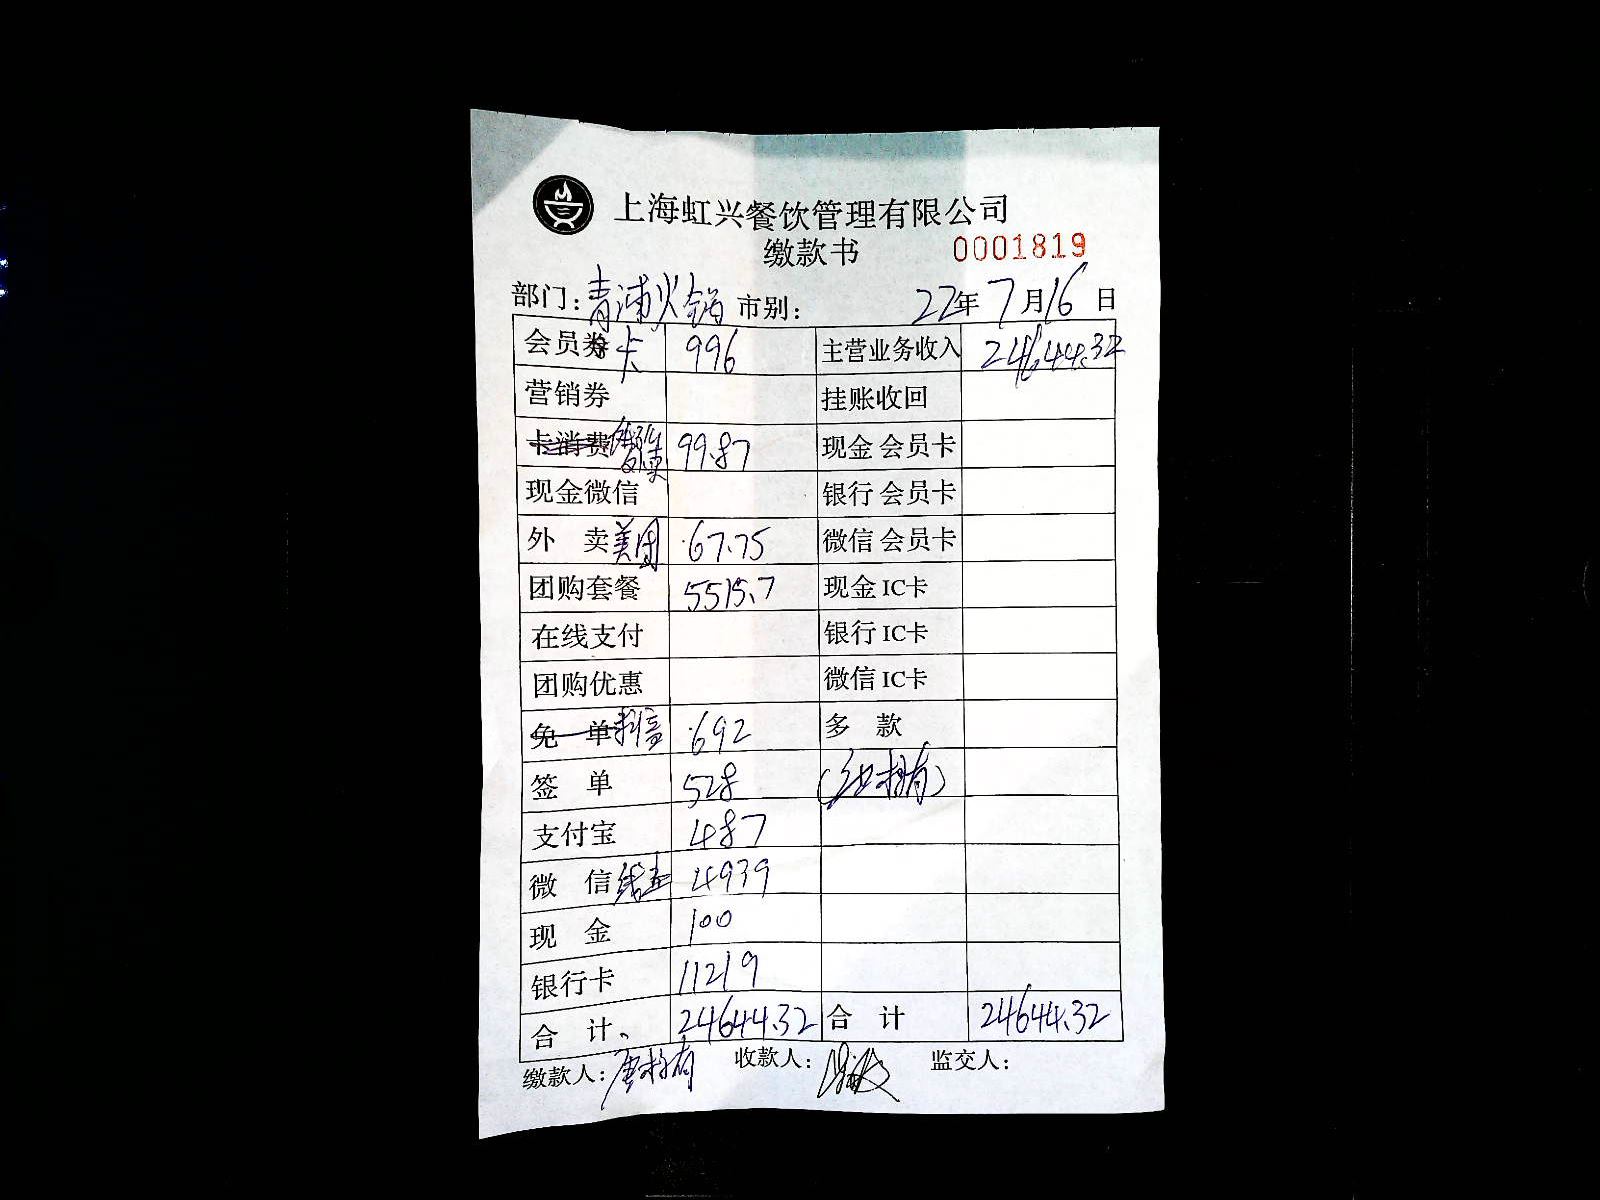 上海虹兴餐饮管理有限公司
缴款书 0001819
部门: 青浦火锅 市别: 22年7月16日
会员券 卡 996 主营业务收入 24644.32
营销券 挂账收回
卡消费 99.87 现金 会员卡
现金微信 银行 会员卡
外 卖 美团 67.75 微信 会员卡
团购套餐 5515.7 现金 IC卡
在线支付 银行 IC卡
团购优惠 微信 IC卡
免 单 抖音 692 多 款
签 单 528
支付宝 487
微 信 4939
现 金 100
银行卡 11219
合 计 24644.32 合 计 24644.32
缴款人: 收款人: 监交人: